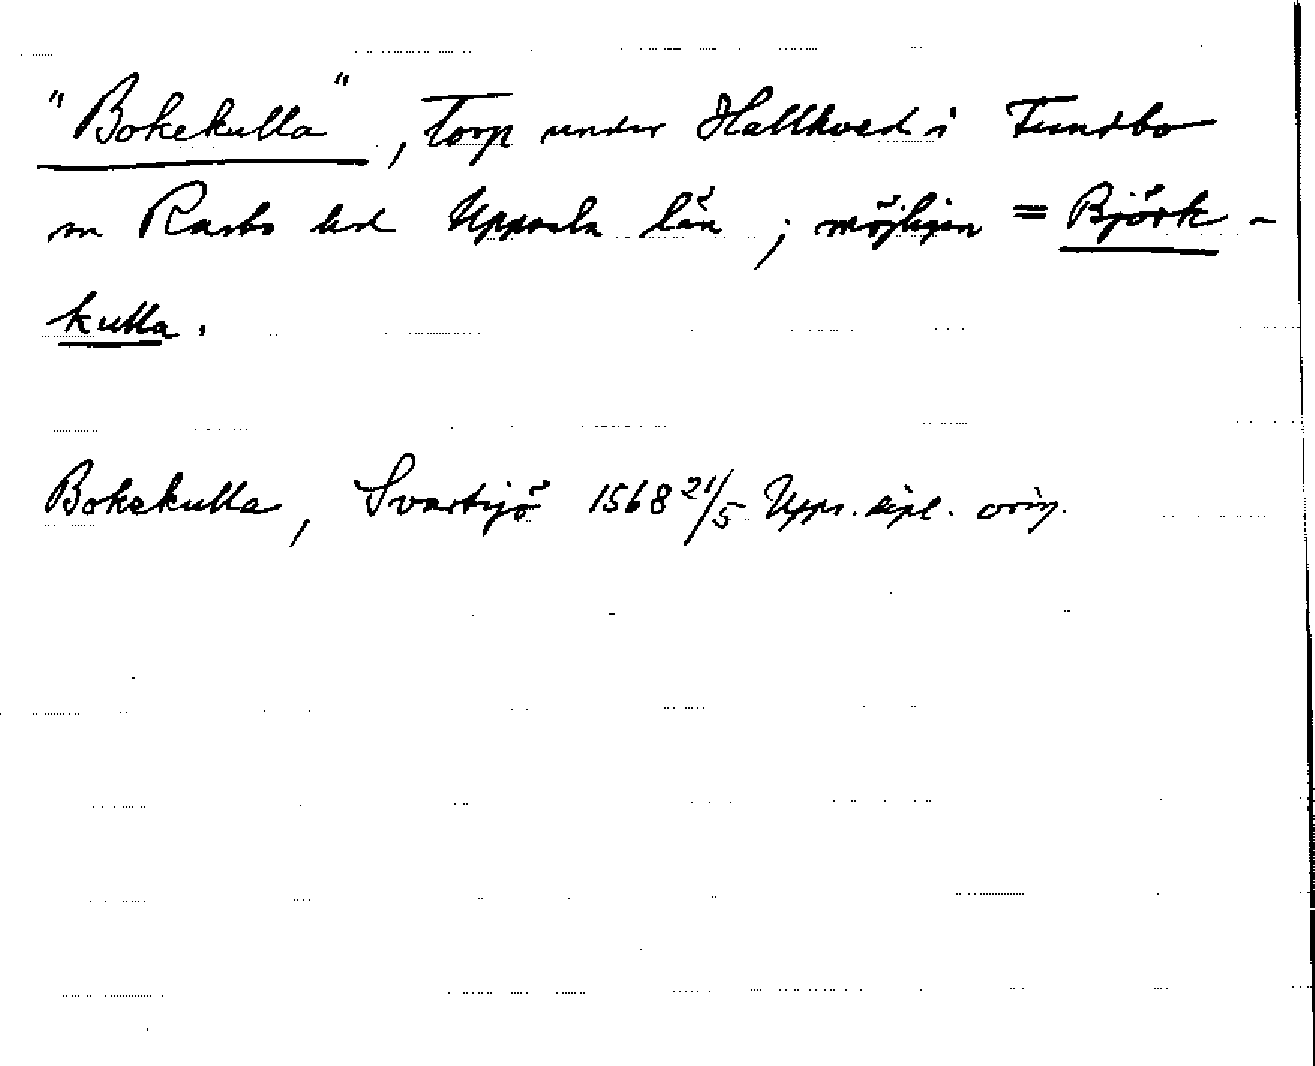 "Bokekulla", Torp under Hallkved i Funbo
sn Rasbo hd Uppsala län; möjligen = Björk-
kulla.
Bokekulla, Svartsjö 1568 21/5 Upps. dipl. orig.